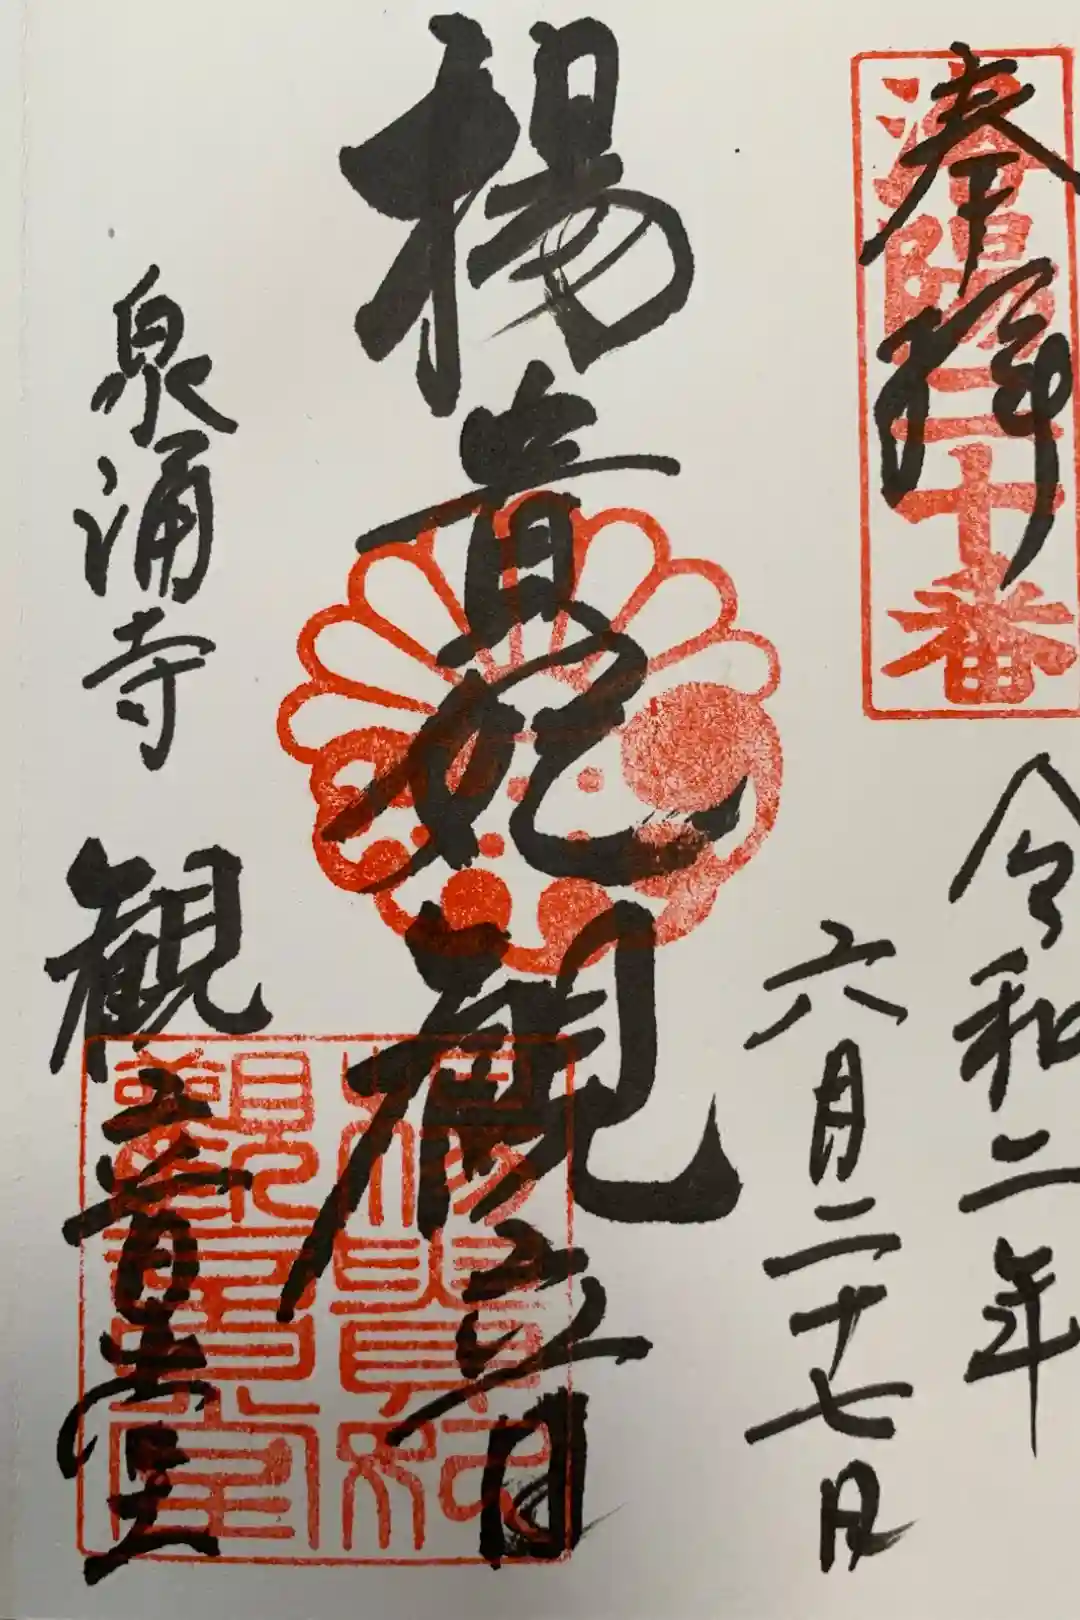 奉拝
洛陽二十番
令和二年
六月二十七日
楊貴妃観音
楊貴妃
觀音堂
泉涌寺 観音堂